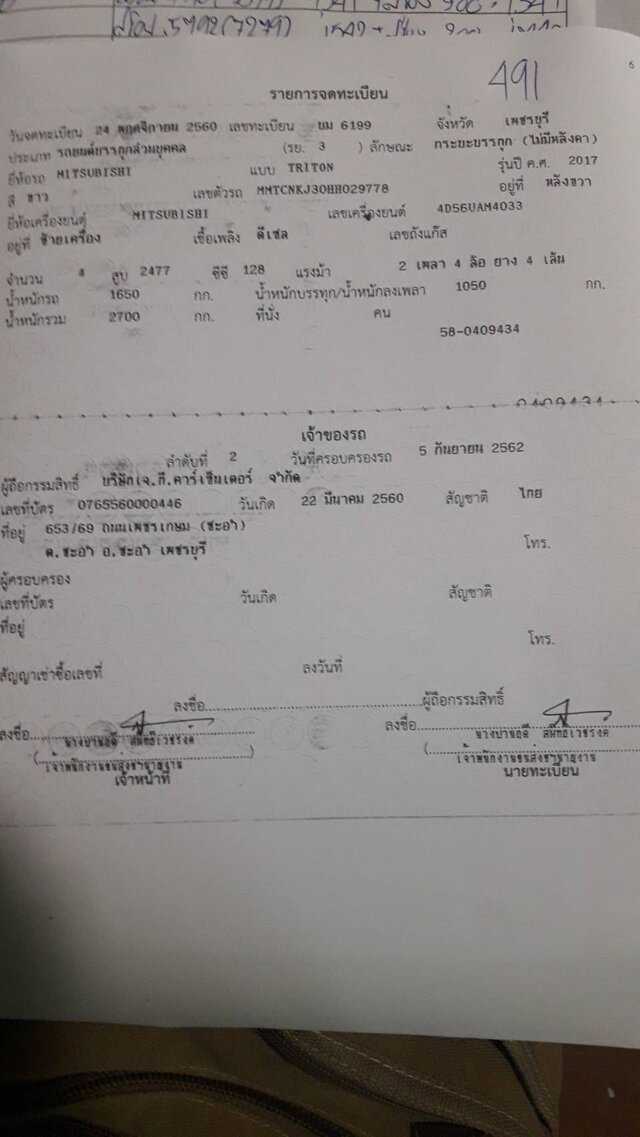 5792(7279)
6
491
รายการจดทะเบียน
วันจดทะเบียน 24 พฤศจิกายน 2560 เลขทะเบียน บม 6199 จังหวัด เพชรบุรี
ประเภท รถยนต์บรรทุกส่วนบุคคล (รย. 3 ) ลักษณะ กระบะบรรทุก (ไม่มีหลังคา)
ยี่ห้อรถ MITSUBISHI แบบ TRITON รุ่นปี ค.ศ. 2017
สี ขาว เลขตัวรถ MMTCNKJ30HH029778 อยู่ที่ หลังขวา
ยี่ห้อเครื่องยนต์ MITSUBISHI เลขเครื่องยนต์ 4D56UAM4033
อยู่ที่ ซ้ายเครื่อง เชื้อเพลิง ดีเซล เลขถังแก๊ส
จำนวน 4 สูบ 2477 ซีซี 128 แรงม้า 2 เพลา 4 ล้อ ยาง 4 เส้น
น้ำหนักรถ 1650 กก. น้ำหนักบรรทุก/น้ำหนักลงเพลา 1050 กก.
น้ำหนักรวม 2700 กก. ที่นั่ง คน
58-0409434
0409434
เจ้าของรถ
ลำดับที่ 2 วันที่ครอบครองรถ 5 กันยายน 2562
ผู้ถือกรรมสิทธิ์ บริษัทเจ.ที.คาร์เซ็นเตอร์ จำกัด
เลขที่บัตร 0765560000446 วันเกิด 22 มีนาคม 2560 สัญชาติ ไทย
ที่อยู่ 653/69 ถนนเพชรเกษม (ชะอำ)
ต.ชะอำ อ.ชะอำ เพชรบุรี โทร.
ผู้ครอบครอง
เลขที่บัตร วันเกิด สัญชาติ
ที่อยู่
โทร.
สัญญาเช่าซื้อเลขที่ ลงวันที่
ลงชื่อ ผู้ถือกรรมสิทธิ์
ลงชื่อ ลงชื่อ
เจ้าพนักงานขนส่งชำนาญงาน เจ้าพนักงานขนส่งชำนาญงาน
เจ้าหน้าที่ นายทะเบียน